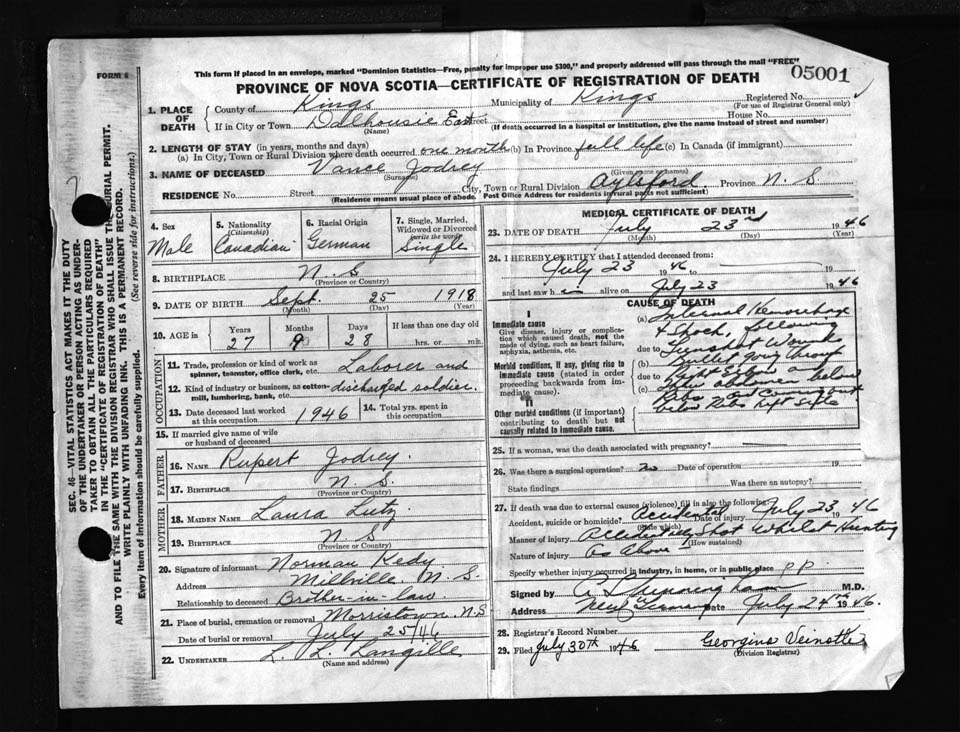 This form if placed in an envelope, marked "Dominion Statistics—Free, penalty for improper use $300," and properly addressed will pass through the mail "FREE"
FORM 6
05001
PROVINCE OF NOVA SCOTIA—CERTIFICATE OF REGISTRATION OF DEATH
1. PLACE OF DEATH County of Kings Municipality of Kings Registered No.
(For use of Registrar General only)
If in City or Town Dalhousie East Street House No.
(Name) (If death occurred in a hospital or institution, give the name instead of street and number)
2. LENGTH OF STAY (in years, months and days)
(a) In City, Town or Rural Division where death occurred one month (b) In Province full life (c) In Canada (if immigrant)
3. NAME OF DECEASED Vance Jodrey
(Surname) (Given name or names)
RESIDENCE No. Street City, Town or Rural Division Aylsford. Province N. S
(Residence means usual place of abode. Post Office Address for residents in rural parts not sufficient)
4. Sex Male
5. Nationality (Citizenship) Canadian
6. Racial Origin German
7. Single, Married, Widowed or Divorced (write the word) Single
8. BIRTHPLACE N. S
(Province or Country)
9. DATE OF BIRTH Sept. 25 1918
(Month) (Day) (Year)
10. AGE in Years Months Days If less than one day old
27 9 28 hrs. or min.
OCCUPATION
11. Trade, profession or kind of work as spinner, teamster, office clerk, etc. Laborer and
12. Kind of industry or business, as cotton-mill, lumbering, bank, etc. discharged soldier.
13. Date deceased last worked at this occupation 1946
14. Total yrs. spent in this occupation
15. If married give name of wife or husband of deceased
FATHER
16. NAME Rupert Jodrey.
17. BIRTHPLACE N. S.
(Province or Country)
MOTHER
18. MAIDEN NAME Laura Lutz
19. BIRTHPLACE N. S
(Province or Country)
20. Signature of informant Norman Kedy
Address Millville, N. S.
Relationship to deceased Brother-in-law
21. Place of burial, cremation or removal Morristown, N.S
Date of burial or removal July 25/46
22. UNDERTAKER L. L. Langille
(Name and address)
MEDICAL CERTIFICATE OF DEATH
23. DATE OF DEATH July 23rd 1946
(Month) (Day) (Year)
24. I HEREBY CERTIFY that I attended deceased from:
July 23 1946 to 19
and last saw h alive on July 23 1946
CAUSE OF DEATH
I
Immediate cause
Give disease, injury or complication which caused death, not the made of dying, such as heart failure, asphyxia, asthenia, etc.
Morbid conditions, if any, giving rise to immediate cause (stated in order proceeding backwards from immediate cause).
II
Other morbid conditions (if important) contributing to death but not causally related to immediate cause.
(a) Internal Hemorrhage
& Shock, following
due to Gunshot Wound
(b) Bullet going through
due to Right Elbow and
(c) abdomen below
Ribs and coming out
below Ribs Left side
25. If a woman, was the death associated with pregnancy?
26. Was there a surgical operation? no Date of operation 19
State findings Was there an autopsy?
27. If death was due to external causes (violence) fill in also the following:
Accident, suicide or homicide? Accidental Date of injury July 23 1946
(State which)
Manner of injury Accidentally Shot Whilst Hunting
(How sustained)
Nature of injury As Above
Specify whether injury occurred in industry, in home, or in public place p p.
Signed by M.D.
Address New Germany Date July 24th 1946.
28. Registrar's Record Number
29. Filed July 30th 1946 Georgina Veinotte
(Division Registrar)
SEC. 46—VITAL STATISTICS ACT MAKES IT THE DUTY
OF THE UNDERTAKER OR PERSON ACTING AS UNDER-
TAKER TO OBTAIN ALL THE PARTICULARS REQUIRED
IN THE "CERTIFICATE OF REGISTRATION OF DEATH"
AND TO FILE THE SAME WITH THE DIVISION REGISTRAR WHO SHALL ISSUE THE BURIAL PERMIT.
WRITE PLAINLY WITH UNFADING INK. THIS IS A PERMANENT RECORD.
Every item of information should be carefully supplied. (See reverse side for instructions.)